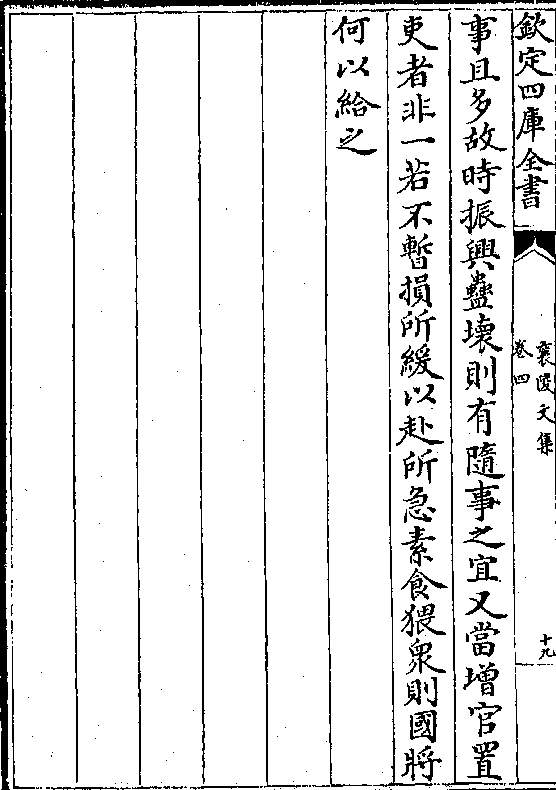 欽定四庫全書
襄陵文集
卷四
十九
事且多故時振興蠱壞則有隨事之宜又當增官置
吏者非一若不暫損所緩以赴所急素食猥衆則國將
何以給之